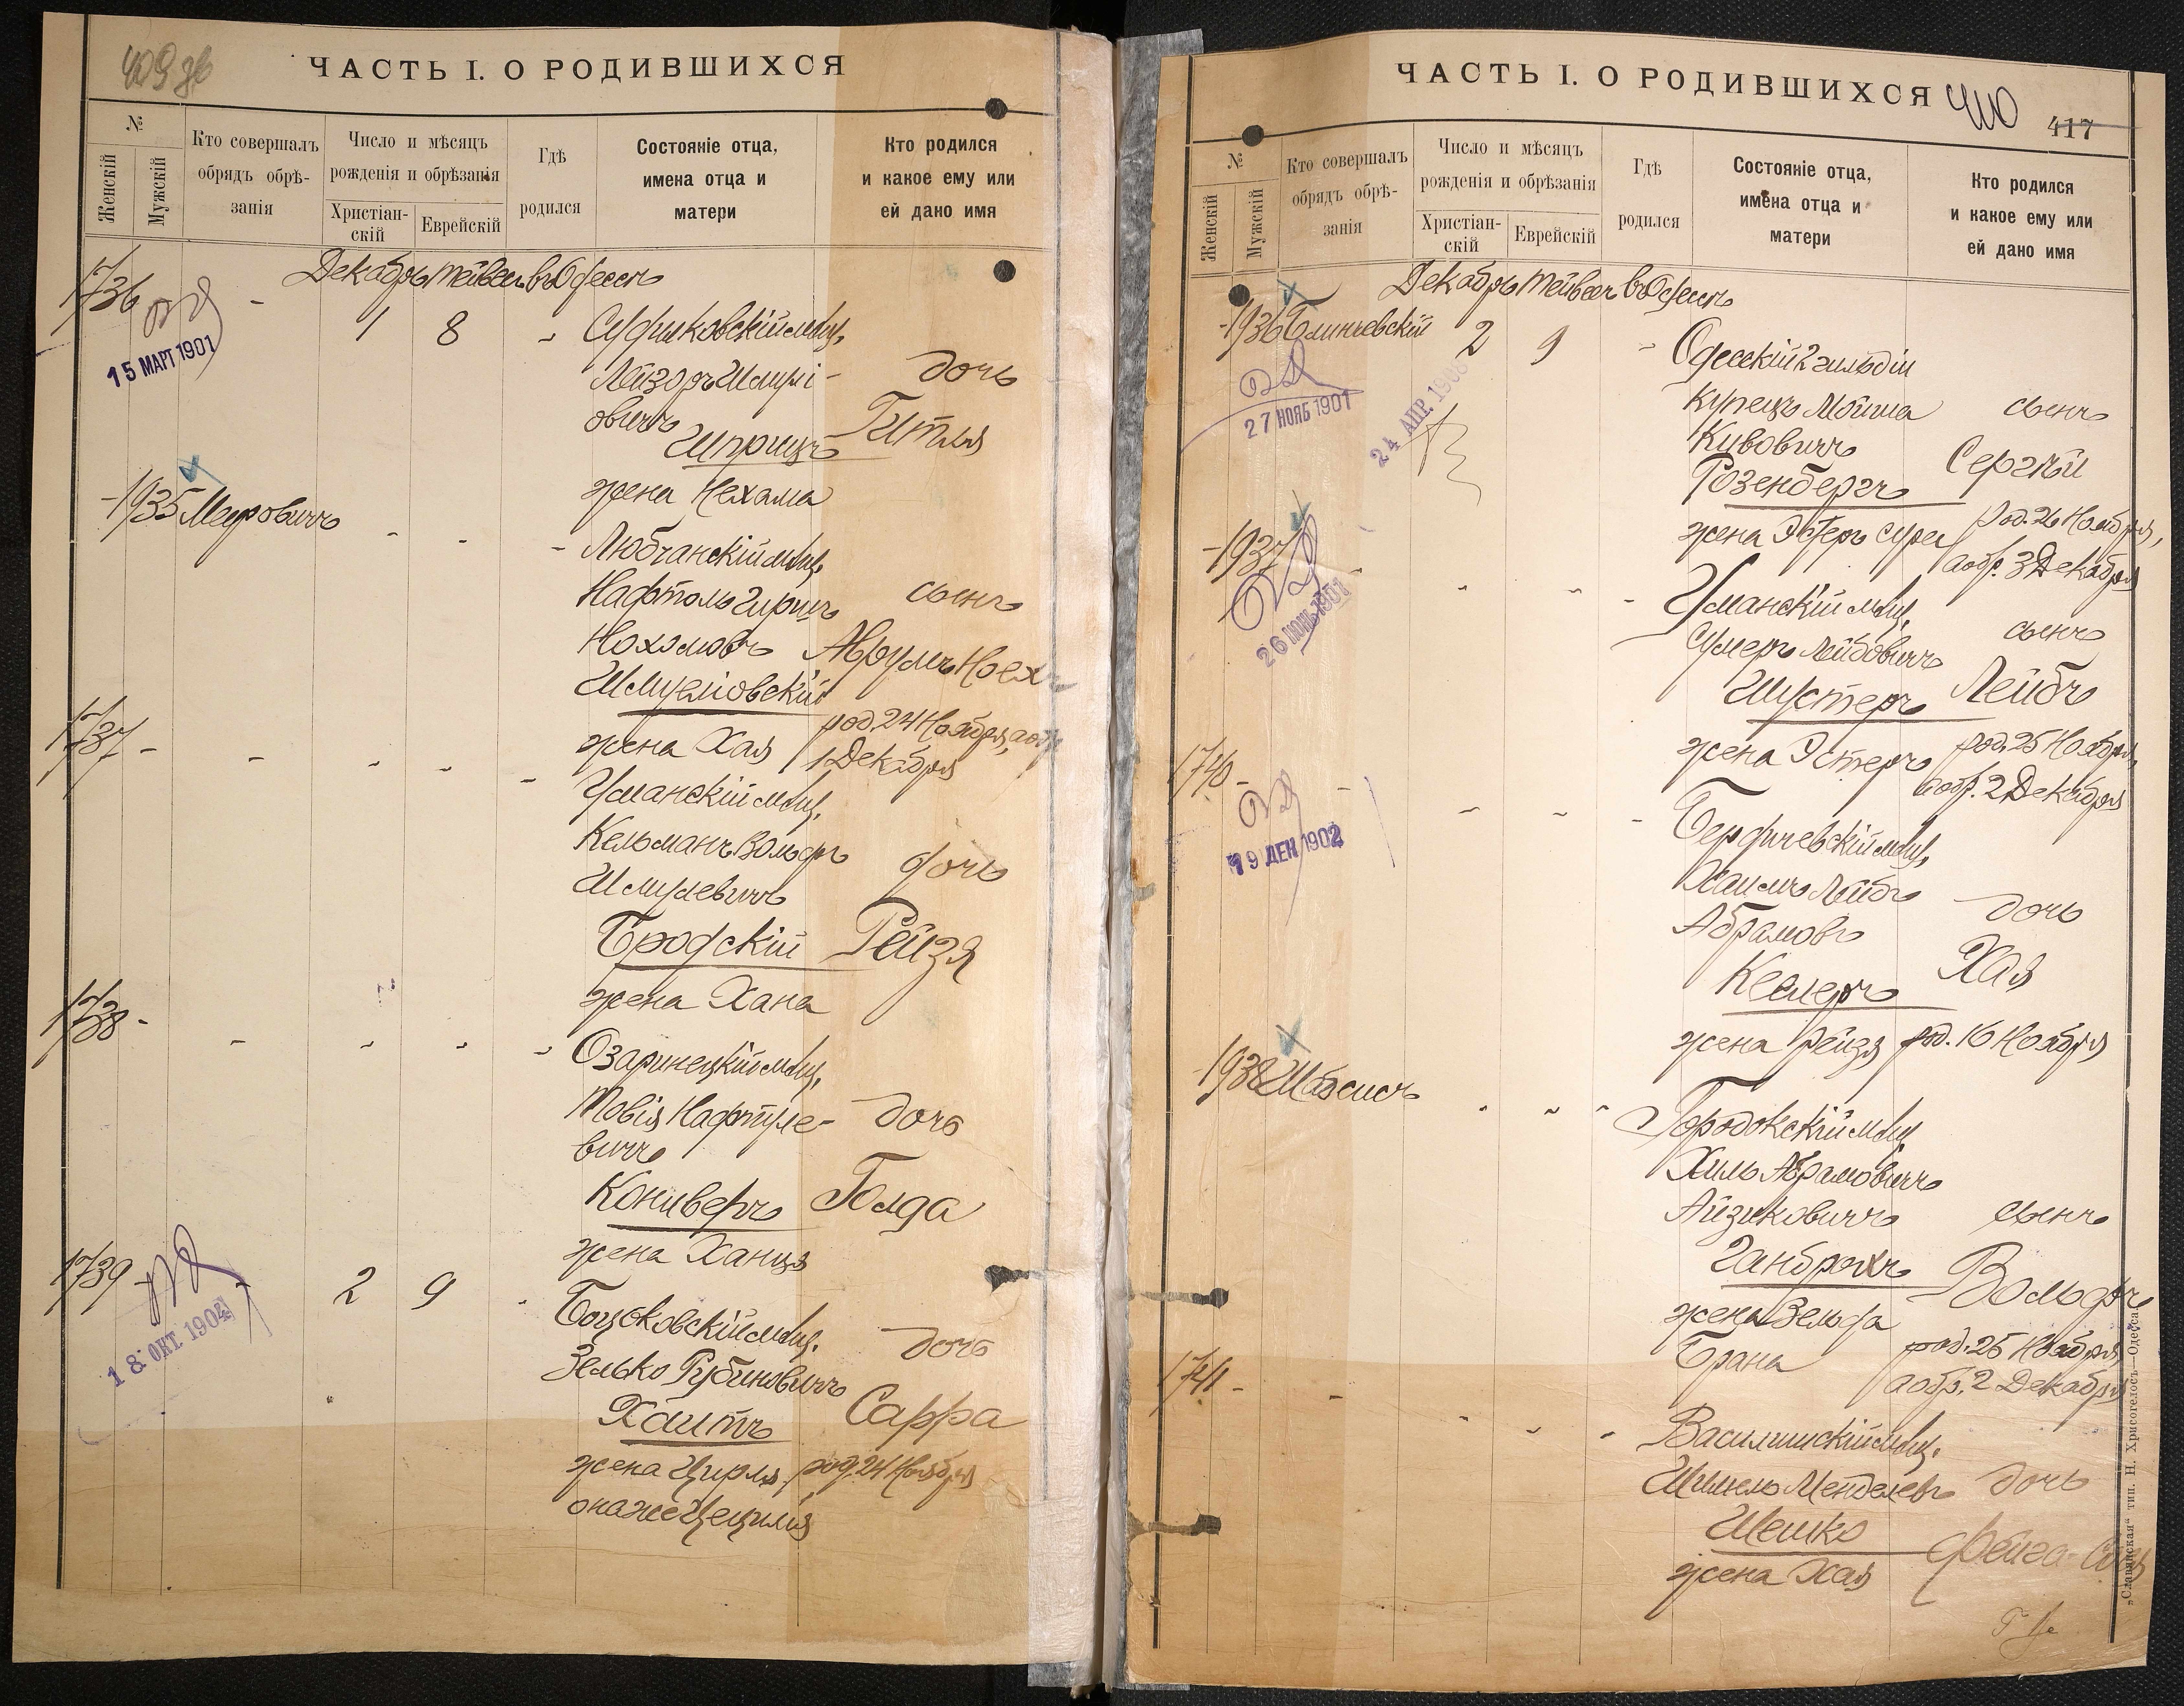 409 об
ЧАСТЬ I. О РОДИВШИХСЯ
№
Женскій
Мужскій
Кто совершалъ
обрядъ обрѣ-
занія
Число и мѣсяцъ
рожденія и обрѣзанія
Христіан-
скій
Еврейскій
Гдѣ
родился
Состояніе отца,
имена отца и
матери
Кто родился
и какое ему или
ей дано имя
Декабрь Тейвесъ въ Одессѣ
1736 - 1 8 -
15 МАРТ 1901
мѣщ.
Лейзоръ Шмулі-
овичъ
Шприцъ
жена Нехама
дочь
Гитля
-1935 Меровичъ - - -
Любчанскій мѣщ.
Нафтоль Гиршъ
Нохомовъ
Шмуеловскій
жена Хая
сынъ
Аврумъ Ноехъ
род. 24 Ноября, а обр.
1 Декабря
1737 - - - - -
Уманскій мѣщ.
Кельманъ Вольфъ
Шмулевичъ
Бродскій
жена Хана
дочь
Рейзя
1738 - - - - -
Озаринецкій мѣщ.
Товія Нафтуле-
вичъ
Кониверъ
жена Ханця
дочь
Голда
1739 - 2 9 -
18 ОКТ. 1904
мѣщ.
Зелько Рубиновичъ
Хаитъ
жена Цирля,
она же Цецилія
дочь
Сарра
род. 24 Ноября
ЧАСТЬ I. О РОДИВШИХСЯ
410
417
№
Женскій
Мужскій
Кто совершалъ
обрядъ обрѣ-
занія
Число и мѣсяцъ
рожденія и обрѣзанія
Христіан-
скій
Еврейскій
Гдѣ
родился
Состояніе отца,
имена отца и
матери
Кто родился
и какое ему или
ей дано имя
Декабрь Тейвесъ въ Одессѣ
-1936 Блинчевскій 2 9 -
27 НОЯБ 1901
24 АПР. 1908
Одесскій 2 гильдіи
купецъ Мойша
Кивовичъ
Розенбергъ
жена Эстеръ Сура
сынъ
Сергѣй
род. 26 Ноября,
а обр. 3 Декабря
-1937 - - -
26 1901
Уманскій мѣщ.
Сумеръ Лейбовичъ
Шустеръ
жена Эстеръ
сынъ
Лейбъ
род. 25 Ноября,
а обр. 2 Декабря
1740 - - - - -
19 ДЕК 1902
Бердичевскій мѣщ.
Хаимъ Лейбъ
Абрамовъ
Келеръ
жена Рейзя
дочь
Хая
род. 16 Ноября
-1938 Шабсисъ - - -
Городокскій мѣщ.
Хиль Абрамовичъ
Айзиковичъ
Ганбрахъ
жена Зельда
Брана
сынъ
Вольфъ
род. 25 Ноября,
а обр. 2 Декабря
1741 - - - - -
мѣщ.
Шмиель Менделевъ
Шешко
жена Хая
дочь
Фейга-
„Славянская“ тип. Н. Хрисогелосъ—Одесса.